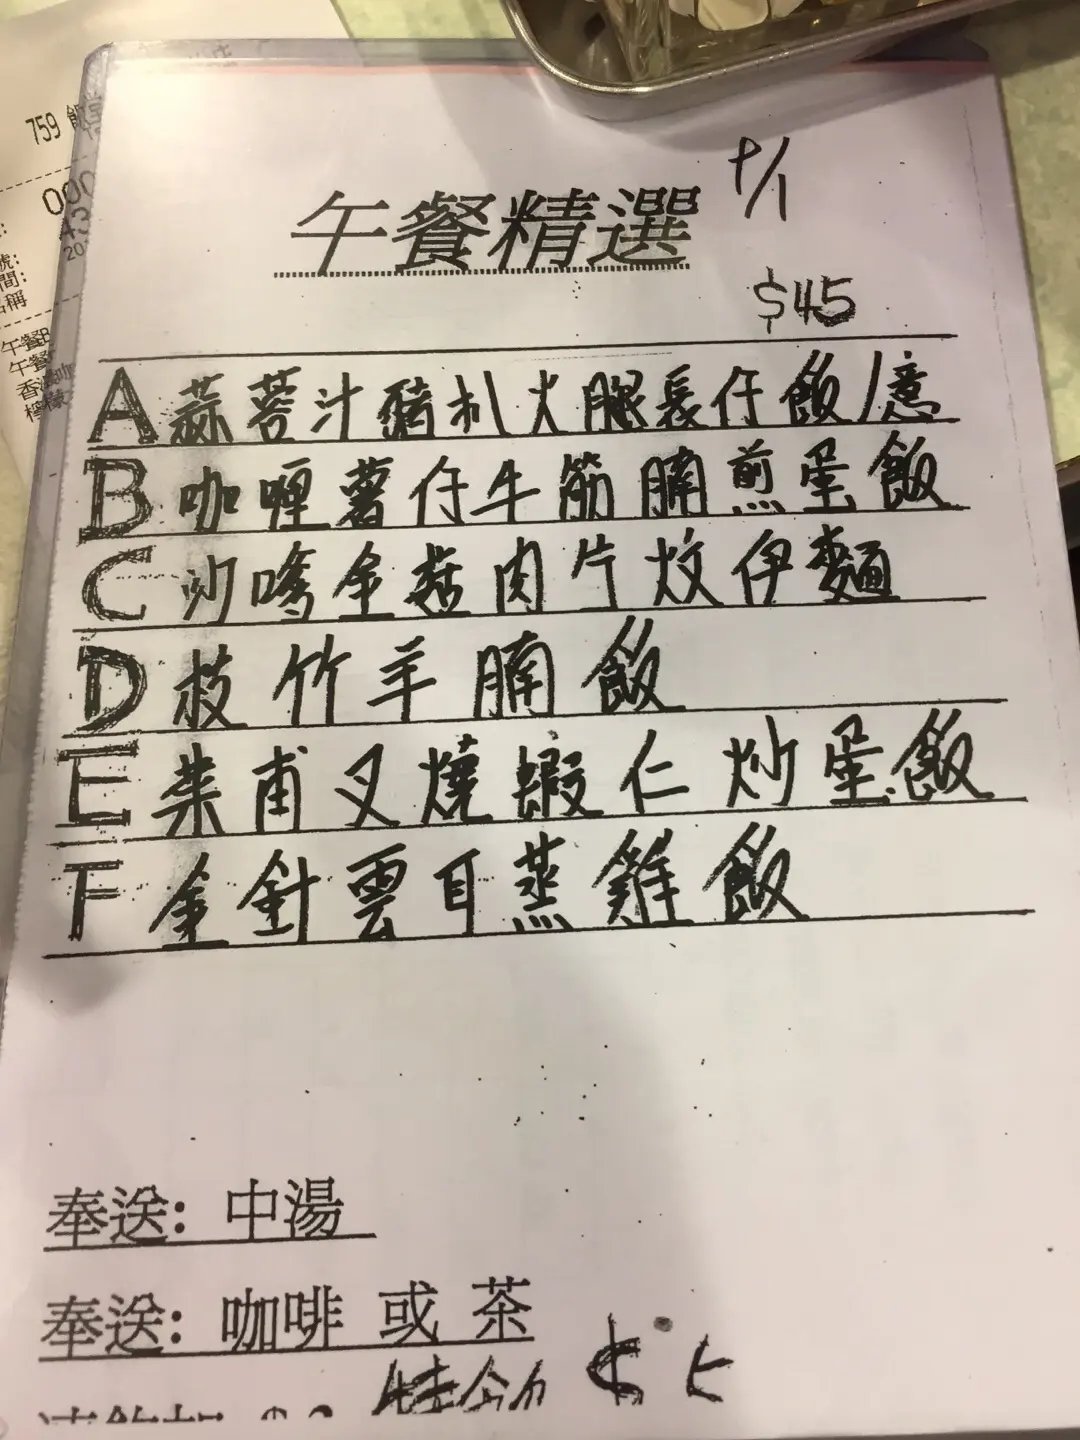 759
000
午餐精選
$45
A 蒜蓉汁豬扒火腿長仔飯/意
B 咖喱薯仔牛筋腩煎蛋飯
C 沙嗲金菇肉片炆伊麵
D 枝竹羊腩飯
E 菜甫叉燒蝦仁炒蛋飯
F 金針雲耳蒸雞飯
奉送: 中湯
奉送: 咖啡 或 茶